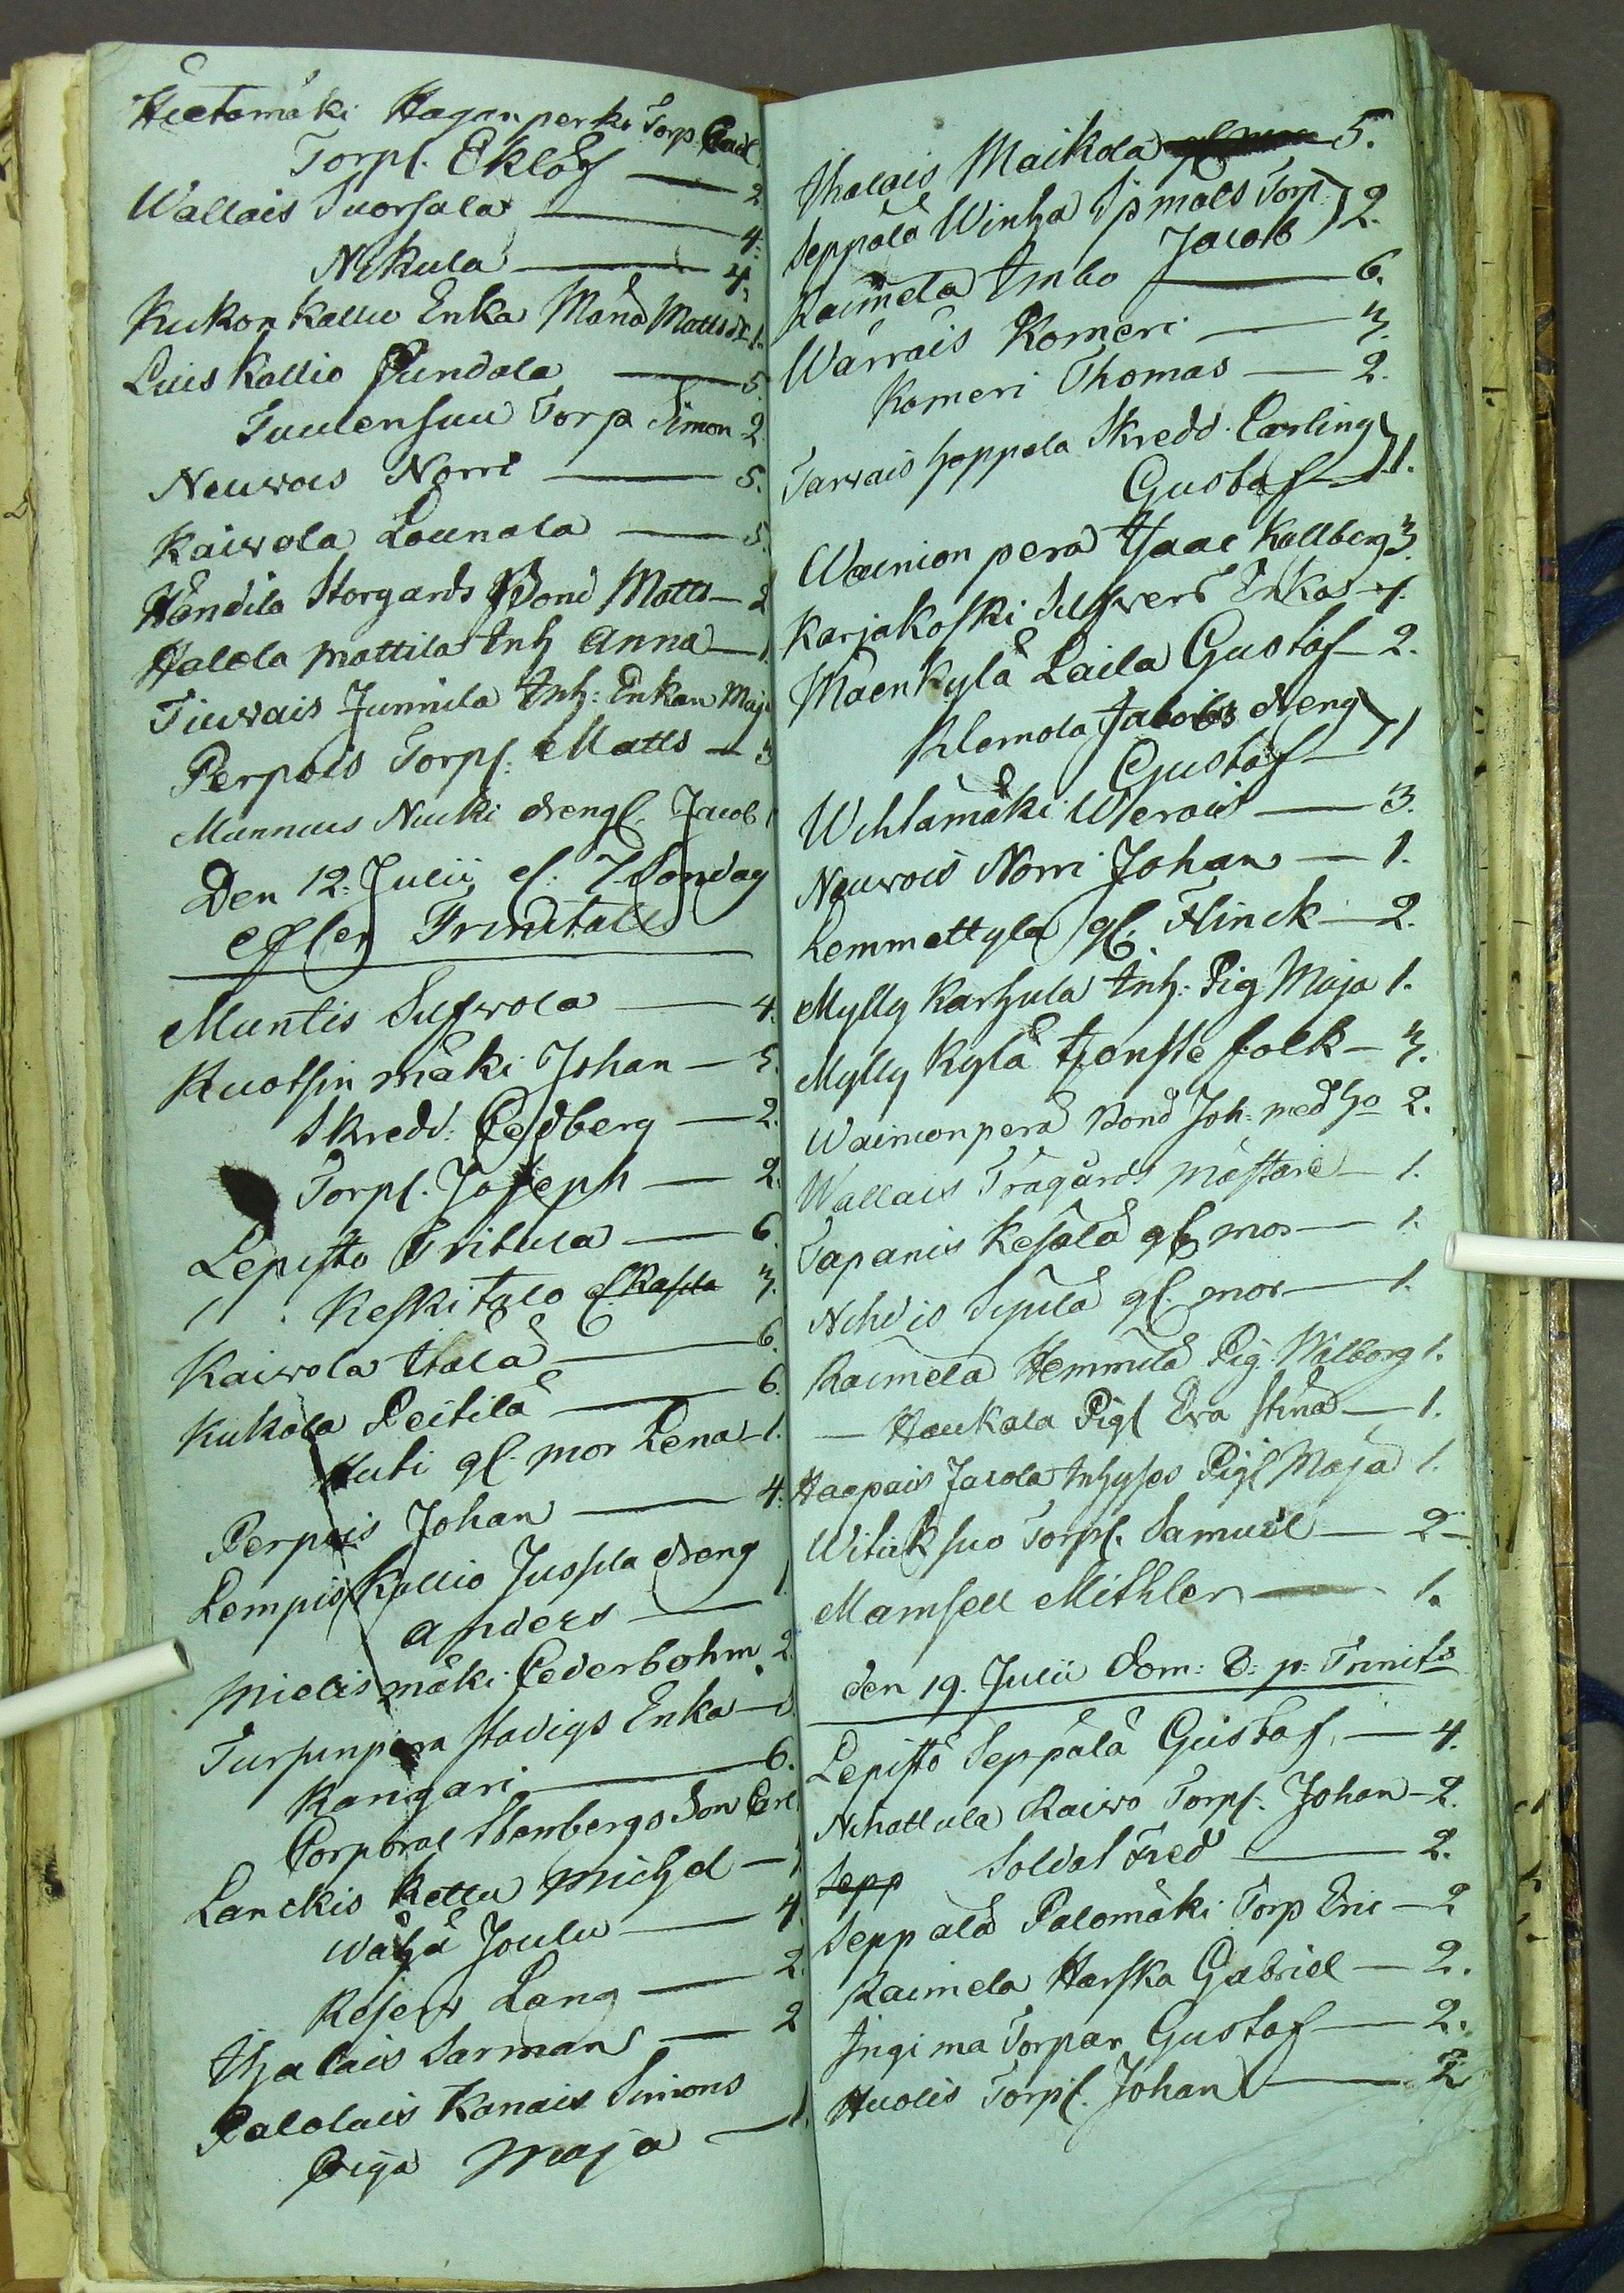 Hietamäki Haganperko Torp Carl
Torpl. Eklöf — 2
Wallais Suorsala — 4.
Nikula — 4.
Kukon Kallio Enka Månd Matts dr 1.
Luis Kallio Pundola — 5.
Tuulensuu Torp Simon 2
Neuvois Norri — 5.
Kaivola Lounala — 5.
Händilä Storgards Bond Matts — 2
Halola Mattila Inh Anna — 1.
Tiuvais Junnila Inh: Enkan Maj
Perpois Torpl: Matts — 3
Munnus Nuuki drengl. Jacob 1
Den 12. Julii el. 7 Söndag
efter Trinitatis
Muntis Sufvola — 4.
Ruotsin mäki Johan — 5.
Skredd: Cedberg — 2.
Torpl. Joseph — 2.
Lepistö Fritula — 6.
11 . Keskitalo 3.
Kaivola Isotalä — 6.
Kukola Peitilä — 6.
Huti gl. mor Lena — 1.
Perpois Johan — 4.
Lempis Kallio Jussila dreng
Anders — 1
Mielismäki Cederbohm 2.
Tursunpera stadigs Enka —
Kangari — 6.
Corporal Stenbergs Son Carl
Lanckis Kettu Michel — 1
Wähä Joulu — 4.
Reserv Lang — 2.
Ihalais Sarman — 2
Palolais Kanais Simons
Piga Maja — 1.
Ihalais Maikola 5.
Seppälä Winha Spmals Torp.
Jacob } 2.
Raimela Imbo — 6.
Wärräis Komeri — 3.
Komeri Thomas — 2.
Tarvais Hoppela Skredd. Carling
Gustaf } 1.
Wainion perä Isaac Kallberg 3.
Karjakoski Silfverb Enkas — 1.
Mäenkylä Laila Gustaf — 2.
Klemola Jacobs dreng
Gustaf } 1
Wihlamäki Werois — 3.
Neuvois Norri Johan — 1.
Lemmettylä gl. Flinck — 2.
Mylly Karhula Inh. Pig Maja 1.
Mylly Kylä tjenste folk — 3.
Wainionperä Bond Joh: med ho 2.
Wallais Trägårds mästare — 1.
Tapanis Kesälä gl. mor — 1.
Nihdis Sipilä gl. mor — 1.
Raimela Hemmilä Pig. Walborg 1.
— Haukala Pigl Eva Stina — 1.
Haapais Jacola Inhyses Pigl Maja 1.
Witiksuo Torpl. Samuel — 2.
Mamsell Mithler — 1.
den 19. Julii Dom: 8: p: Trinits
Lepistö Seppälä Gustaf — 4.
Nihattula Raivo Torpl. Johan — 2.
Sepp Soldat Fred — 2.
Seppälä Palomäki Torp Eric — 2
Raimela Harska Gabriel — 2.
Ingima Torpar Gustaf — 2.
Huolis Torpl. Johan — 2